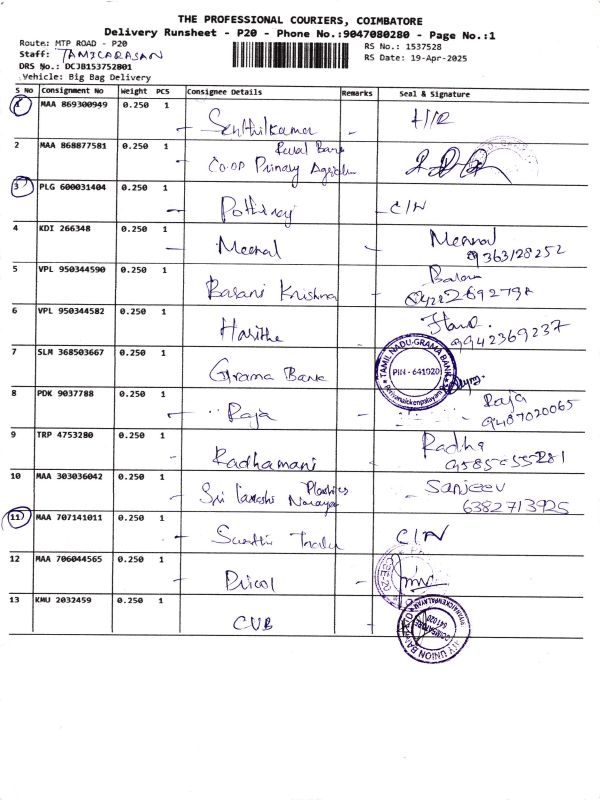 THE PROFESSIONAL COURIERS, COIMBATORE
Delivery Runsheet - P20 - Phone No.:9047080280 - Page No.:1
Route: MTP ROAD - P20
RS No.: 1537528
Staff: TAMILARASAN
RS Date: 19-Apr-2025
DRS No.: DCJB153752801
Vehicle: Big Bag Delivery
S No Consignment No Weight PCS Consignee Details Remarks Seal & Signature
1 MAA 869300949 0.250 1 Senthilkumar
2 MAA 868877581 0.250 1 Rural Bank
CO.OP Primary
3 PLG 600031404 0.250 1 Pothiraj - C/N
4 KDI 266348 0.250 1 Meenal - Meenal
9363128252
5 VPL 950344590 0.250 1 Basani Krishna -
6 VPL 950344582 0.250 1 Haritha
9942369237
7 SLM 368503667 0.250 1 Grama Bank TAMIL NADU GRAMA BANK
PIN - 641020
8 PDK 9037788 0.250 1 Raja - Raja
9487020065
9 TRP 4753280 0.250 1 Radhamani - Radha
10 MAA 303036042 0.250 1 Plastics
Sri Narayana - Sanjeev
6382713925
11 MAA 707141011 0.250 1 - C/N
12 MAA 706044565 0.250 1 Pricol -
13 KMU 2032459 0.250 1 CUB -